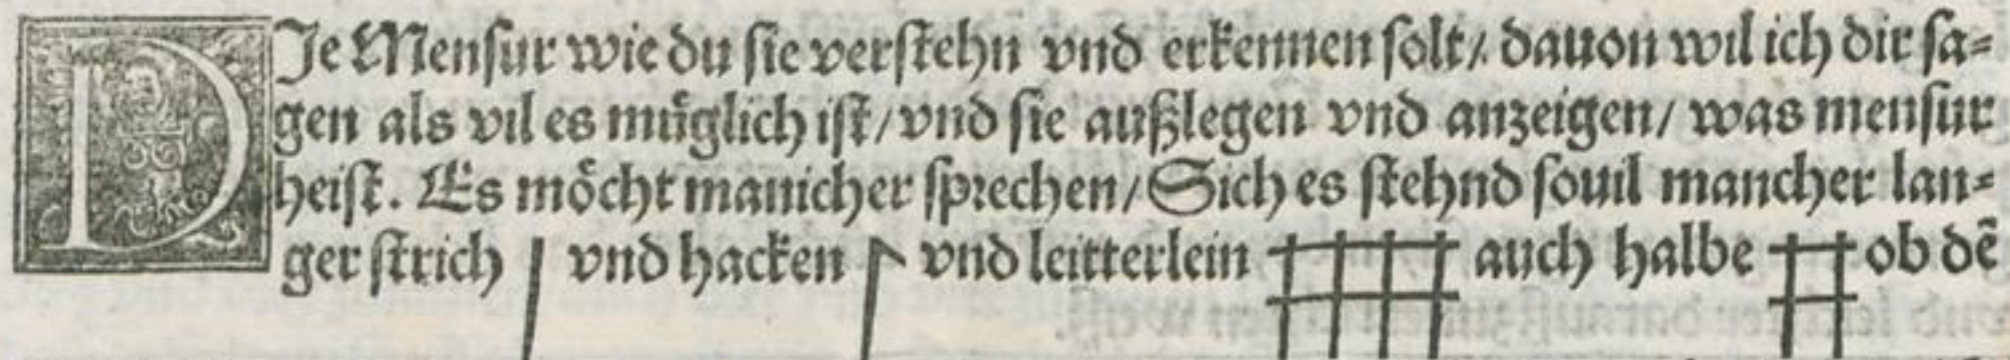 DIe Menſur wie du ſie verſtehn vnd erkennen ſolt / dauon wil ich dir ſa⸗
gen als vil es muͤglich iſt / vnd ſie außlegen vnd anzeigen / was menſur
heiſt. Es moͤcht manicher ſprechen / Sich es ſtehnd ſouil mancher lan⸗
ger ſtrich vnd hacken vnd leitterlein auch halbe ob dē